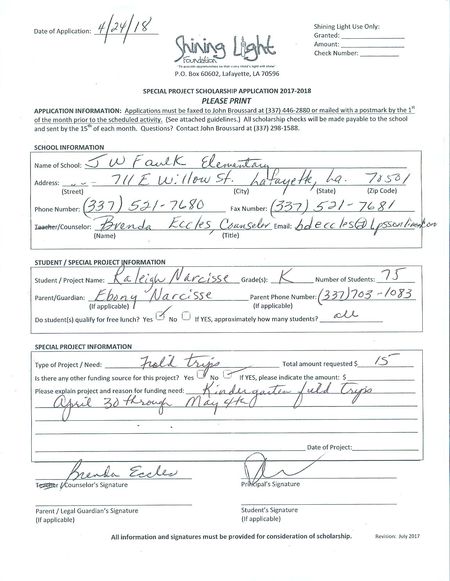 Date of Application: 4/24/18
Shining Light Use Only:
Granted:
Amount:
Check Number:
Shining Light
Foundation
P.O. Box 60602, Lafayette, LA 70596
SPECIAL PROJECT SCHOLARSHIP APPLICATION 2017-2018
PLEASE PRINT
APPLICATION INFORMATION: Applications must be faxed to John Broussard at (337) 446-2880 or mailed with a postmark by the 1st
of the month prior to the scheduled activity. (See attached guidelines.) All scholarship checks will be made payable to the school
and sent by the 15th of each month. Questions? Contact John Broussard at (337) 298-1588.
SCHOOL INFORMATION
Name of School: J W Faulk Elementary
Address: 711 E Willow St. Lafayette, La. 70501
(Street) (City) (State) (Zip Code)
Phone Number: (337) 521-7680 Fax Number: (337) 521-7681
Teacher/Counselor: Brenda Eccles, Counselor Email: bdeccles@lpssonline.com
(Name) (Title)
STUDENT / SPECIAL PROJECT INFORMATION
Student / Project Name: Raleigh Narcisse Grade(s): K Number of Students: 75
Parent/Guardian: Ebony Narcisse Parent Phone Number: (337)703-1083
(If applicable) (If applicable)
Do student(s) qualify for free lunch? Yes No If YES, approximately how many students? all
SPECIAL PROJECT INFORMATION
Type of Project / Need: Field trips Total amount requested $ 15
Is there any other funding source for this project? Yes No If YES, please indicate the amount: $
Please explain project and reason for funding need: Kindergarten field trips
April 30 through May 4th
Date of Project:
Brenda Eccles
Teacher / Counselor's Signature Principal's Signature
Parent / Legal Guardian's Signature Student's Signature
(If applicable) (If applicable)
All information and signatures must be provided for consideration of scholarship. Revision: July 2017